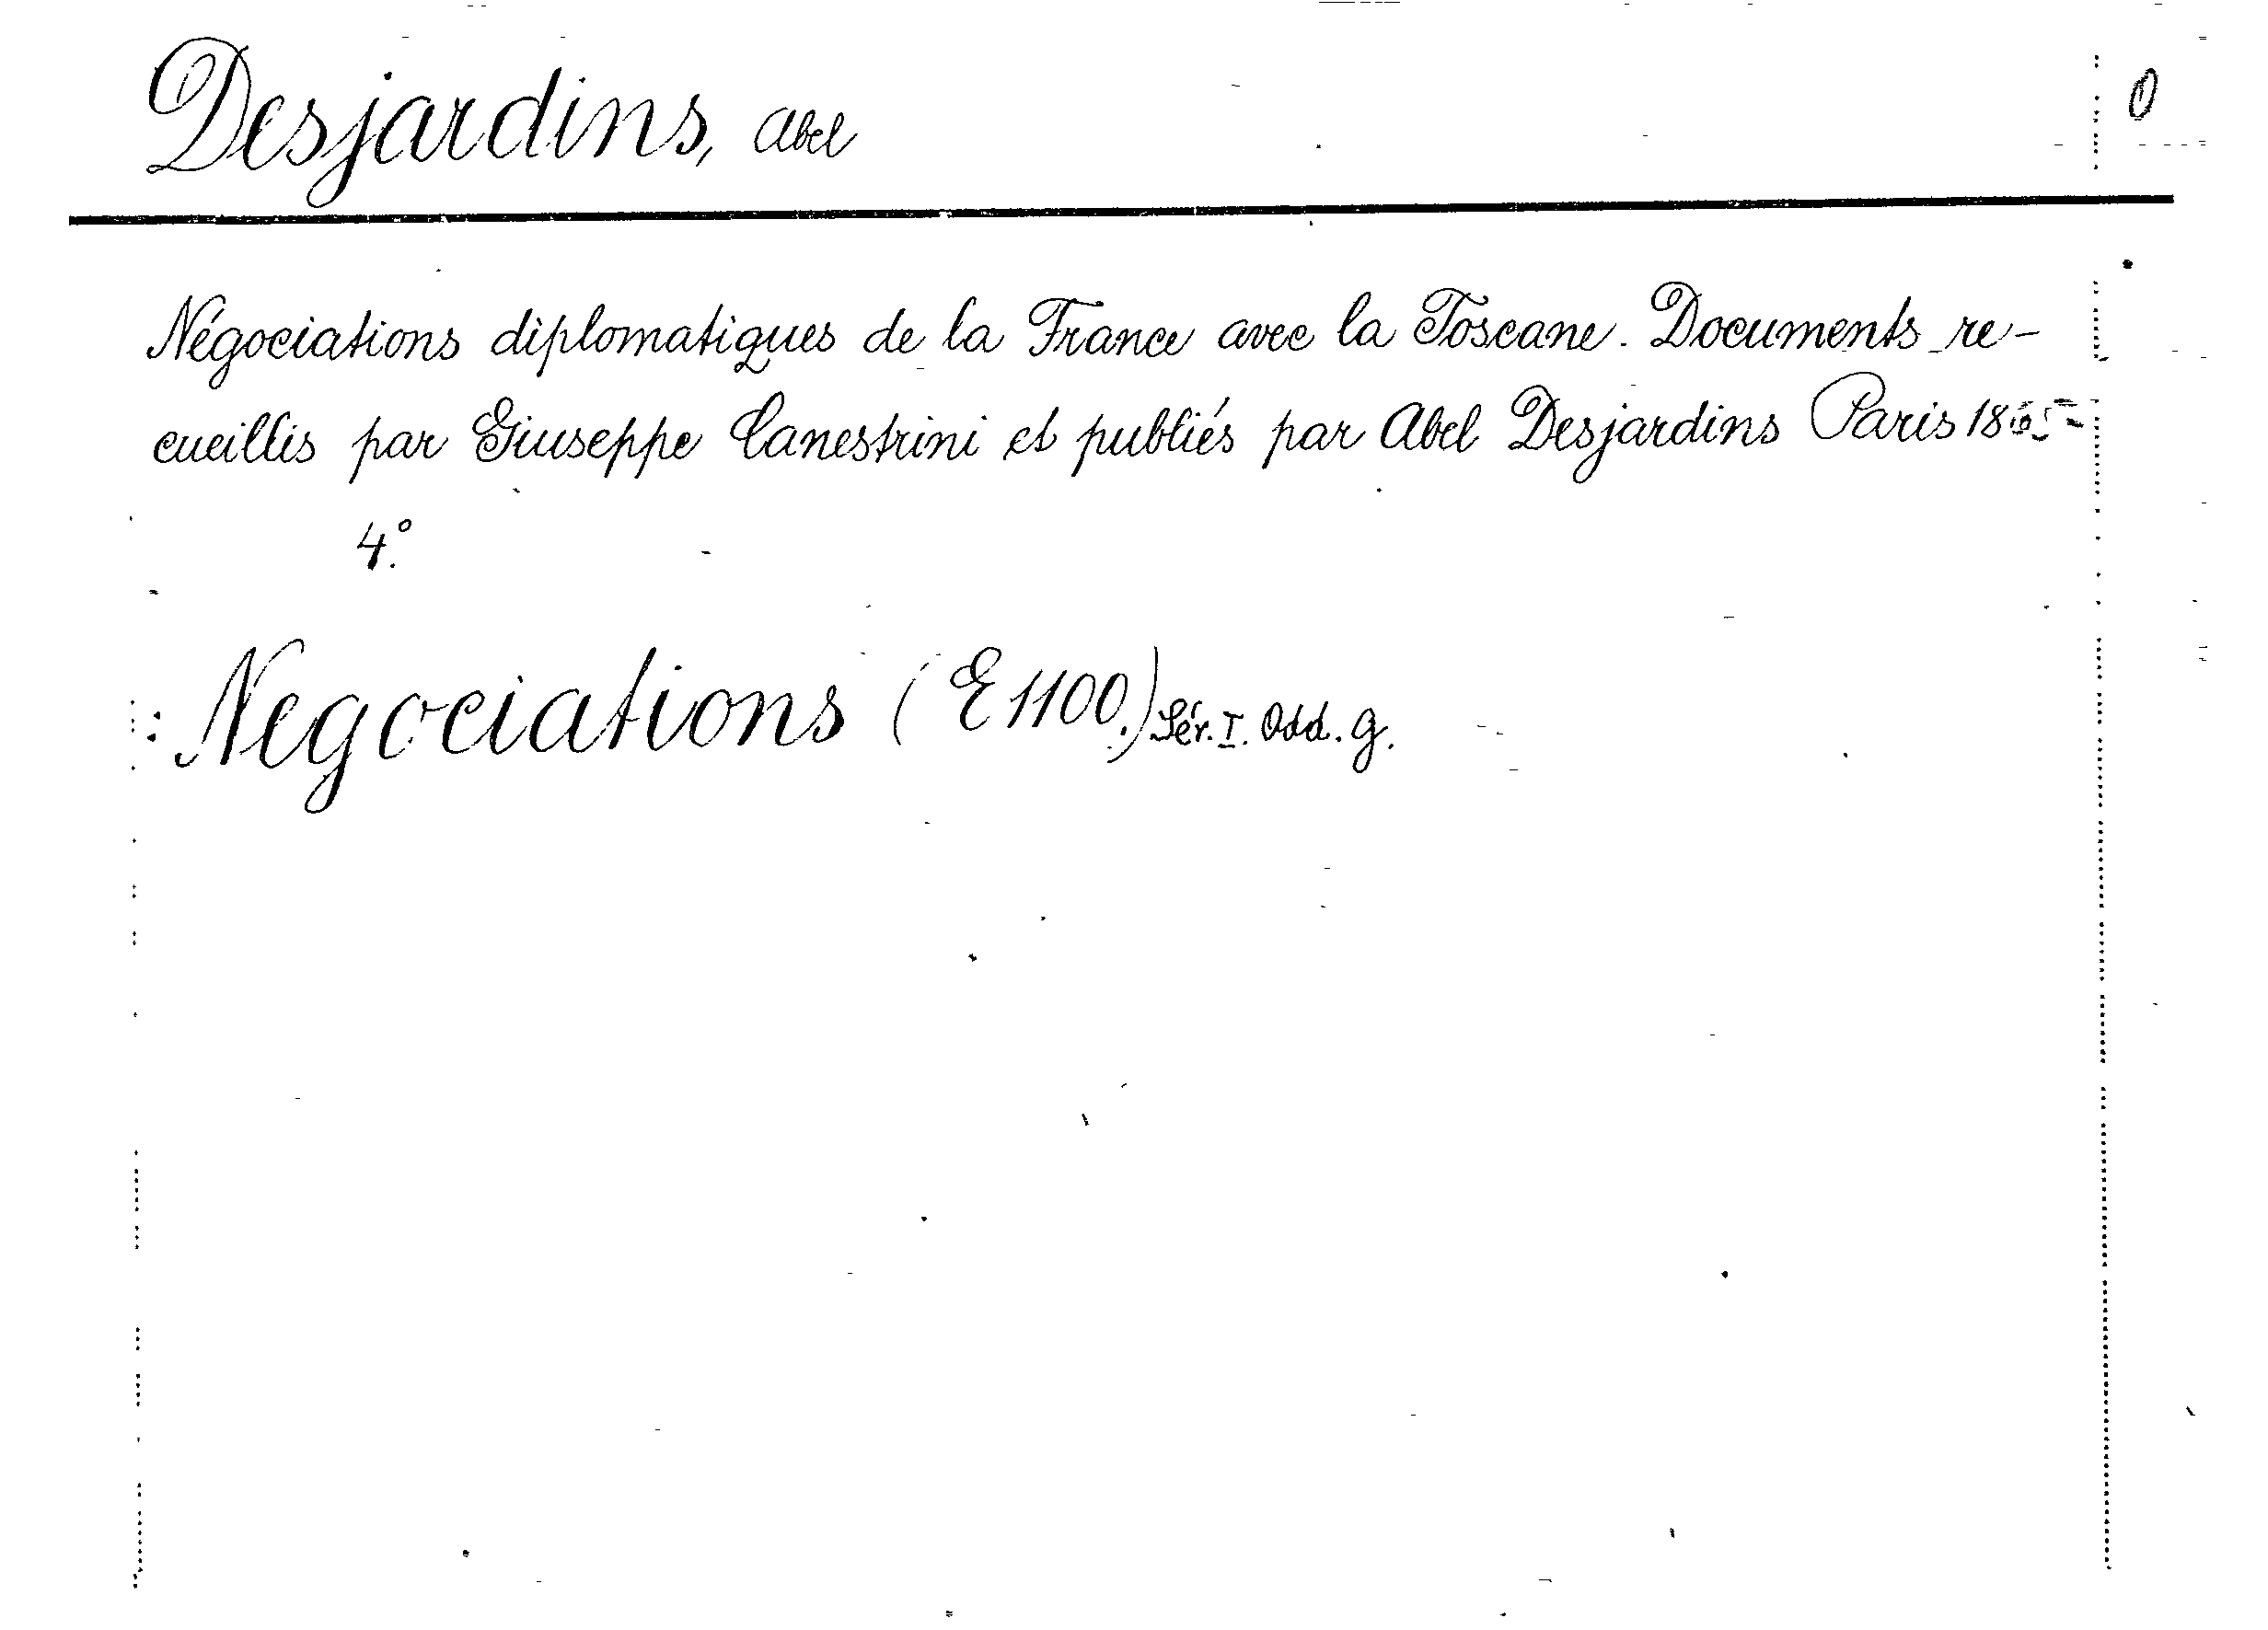 Desjardins, Abel
0
Négociations diplomatiques de la France avec la Toscane. Documents re-
cueillis par Giuseppe Canestrini et publiés par Abel Desjardins Paris
4°.
: Negociations (E 1100.) Sér. I. Odd. g.